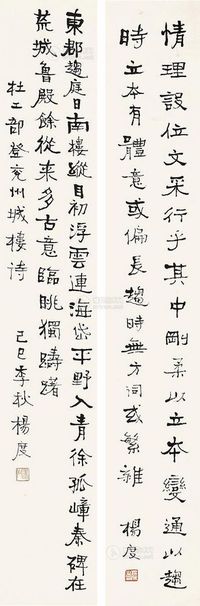 情理設位文采行乎其中剛柔以立本變通以趨
時立本有體意或偏長趨時無方詞或繁雜
楊度
東郡趨庭日南樓縱目初浮雲連海岱平野入青徐孤嶂秦碑在
荒城魯殿餘從來多古意臨眺獨躊躇
杜工部登兗州城樓诗
己巳季秋楊度